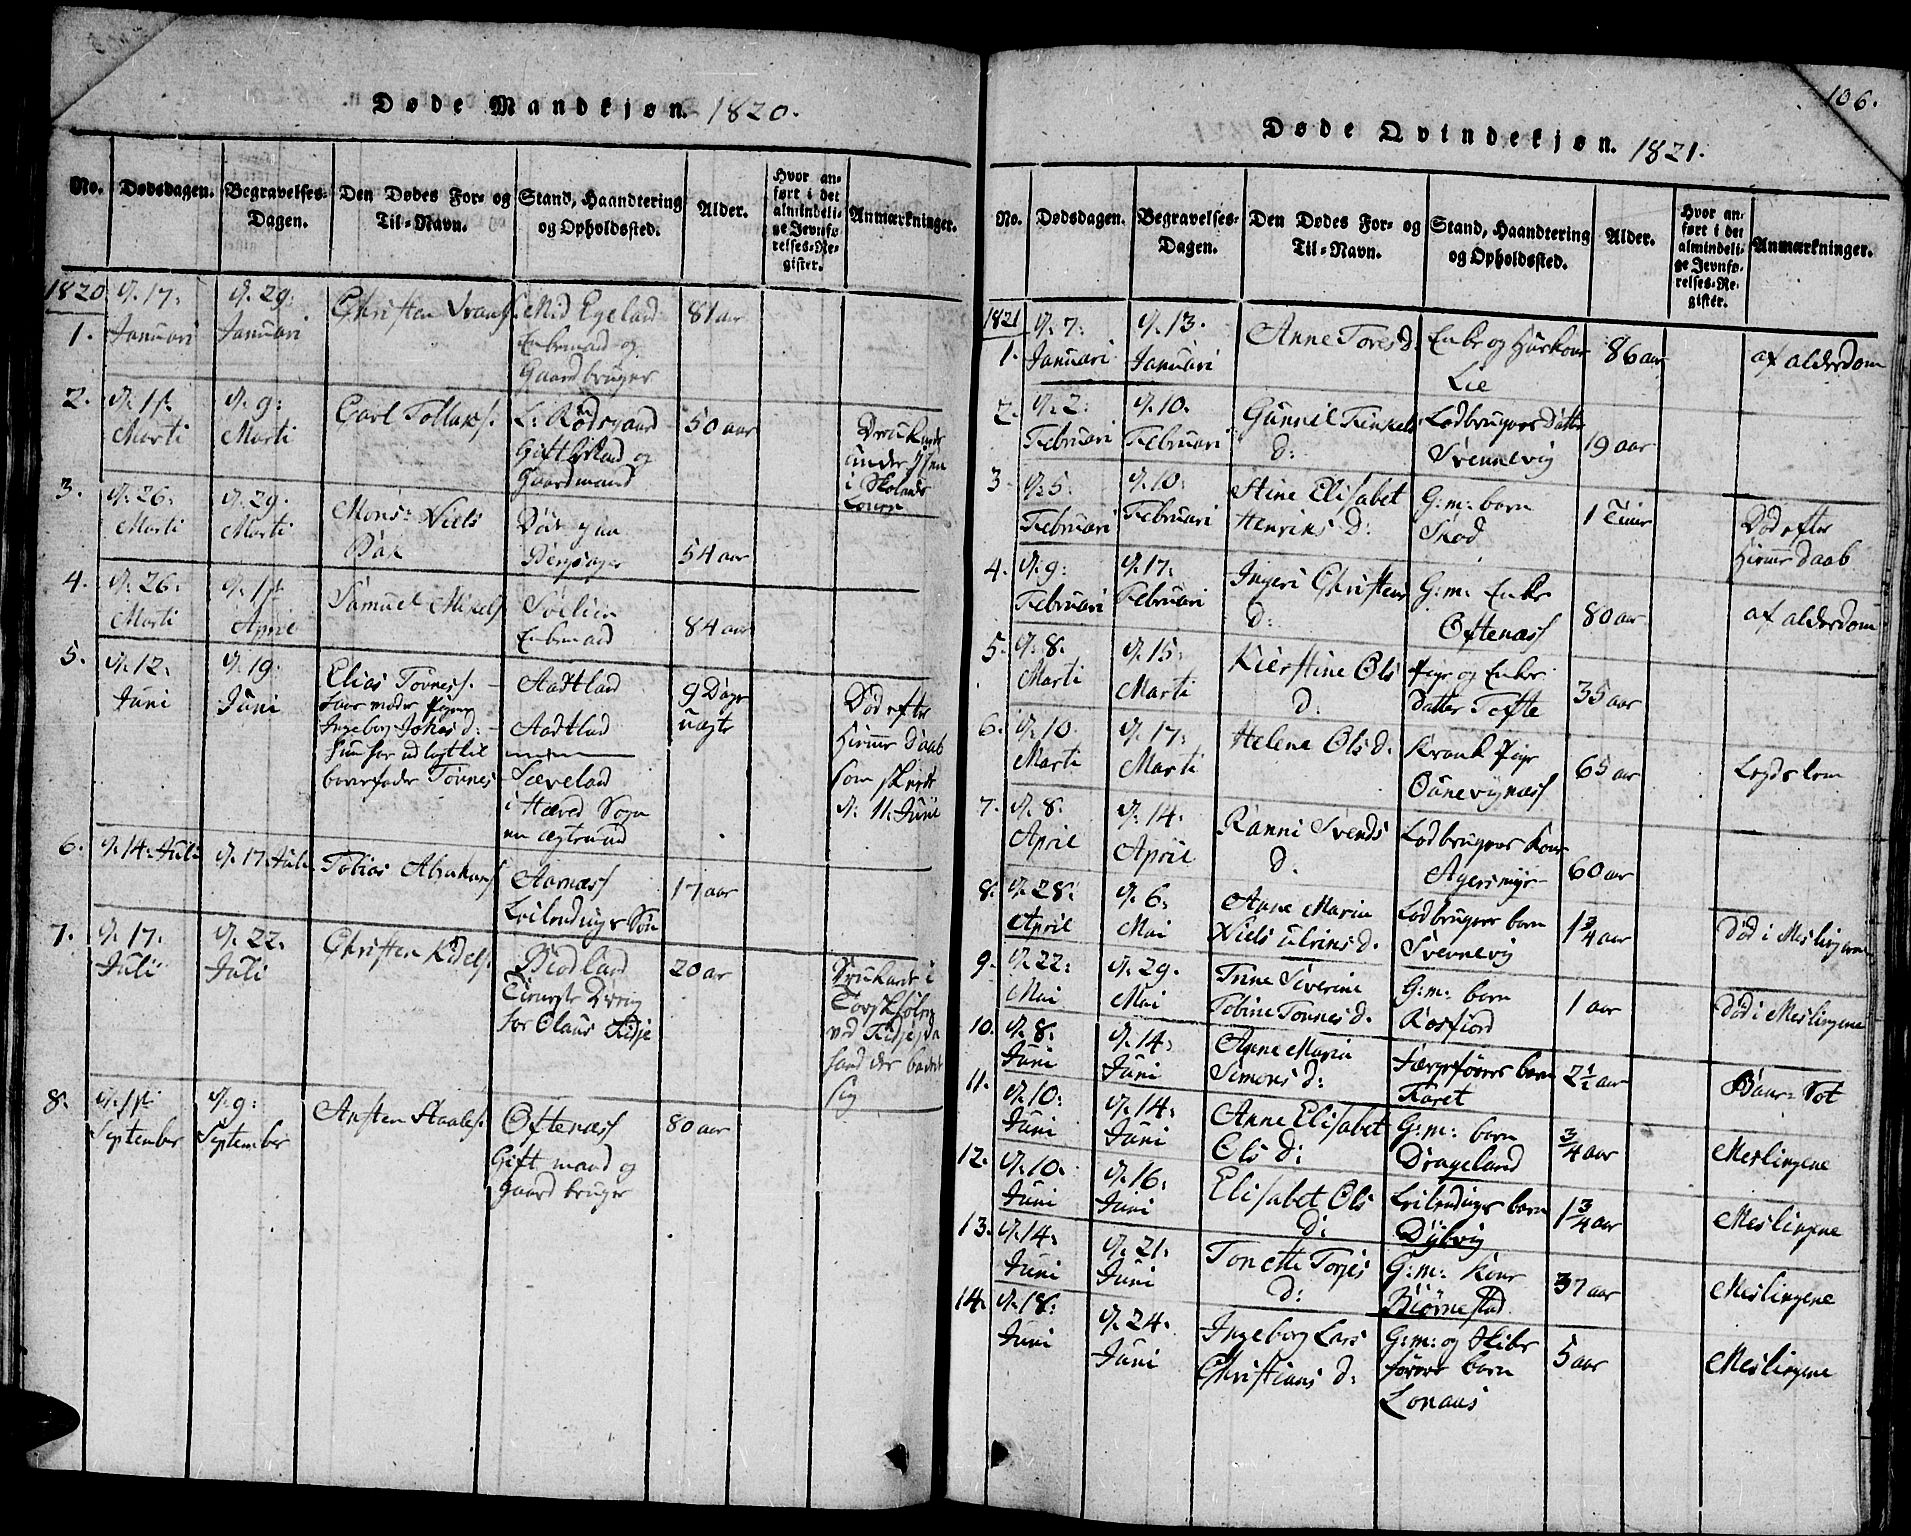 Døde Mandkjøn. 1820.
No. Dødsdagen. Begravelses-Dagen. Den Dødes For- og Til-Navn. Stand, Haandtering og Opholdssted. Alder. Hvor anført i det almindelige Jevnførelses-Register. Anmærkninger.
1820
1. d. 17: Januari d. 29: Januari Christen
Egeland
Enkemand og
Gaardbruger
81 aar
2. d. 1ste Marti d. 9: Marti Carl Tollaks.
Gaardmand
50 aar
Druknede
under Isen
3. d. 26: Marti d. 29. Marti Mons: Niels
54 aar
4. d. 26: Marti d. 1ste April Samuel
Enkemand
84 aar
5. d. 12: Juni d. 19. Juni Elias Tønnes.
Ingeborg d:
barnefader Tønnes
Aadtland
Aadtland
i Sogn
9 Dage
uægte
Død efter
Hiemme Daab
som skeede
d: 11: Junii
6. d. 14. Juli d. 17. Juli Tobias Abrahams.
Aarnæss
Leilendings Søn
17 aar
7. d. 17. Juli d. 22. Juli Christen
Tieneste Dreng
for Claus
20 aar
Druknede i
ved
der badede
sig
8. d. 1ste September d. 9: September Ansten Staales.
Øftenæss
Gift mand og
gaardbruger
80 aar
106.
Døde Qvindekjøn. 1821.
No. Dødsdagen. Begravelses-Dagen. Den Dødes For- og Til-Navn. Stand, Haandtering og Opholdssted. Alder. Hvor anført i det almindelige Jevnførelses-Register. Anmærkninger.
1821
1. d. 7: Januari d. 13. Januari Anne Tores d. Enke og Huuskone
Lie
86 aar af alderdom
2. d. 2: Februari d. 10. Februari Gunnil
d:
Lodbrugers Datter
Svennevig
19 aar
3 d: 5: Februari d. 10. Februari Stine Elisabet
Henriks D:
G:m: barn
1 Time
Død efter
Hiemme Daab
4. d. 9: Februari d. 17: Februari Ingeri Christens
D:
G:m: Enke
Øftenæss
80 aar af alderdom
5. d: 8. Marti d. 15: Marti Kierstine Ols
D.
Pige og Enke
Datter Tofte
35 aar
6. d. 10 Marti d. 17: Marti Helene Ols d. Krank Pige
65 aar Lægdslem
7. d. 8. April d. 14. April Ranni Svends
D.
Lodbrugers Kone
Agersmyr
60 aar
8. d. 28: April d. 6: Mai Anne Maria
Niels d.
Lodbrugers barn
Svennevig
1 3/4 aar Død i Meslingerne
9. d. 22: Mai d. 29. Mai Trine Severine
Tobine Tønnes d.
G:m: barn
Rosfiord
1 aar Død i Meslingene
10. d. 8: Juni d. 14: Juni Anne Maria
Simons d:
Færgeførers barn
2 1/2 aar
11. d. 10: Juni d. 14: Juni Anne Elisabet
Ols D:
G:m: barn
Drageland
3/4 aar Meslingene
12. d. 10. Juni d. 16: Juni Elisabet Ols
D:
Leilendings barn
Dybvig
1 3/4 aar Meslingene
13. d. 14: Juni d. 21: Juni Tonette Torjes
D:
G:m: Kone
Biørnestad
37 aar Meslingene
14. d. 18: Juni d. 24. Juni Ingeborg Lars
Christians d:
G:m: og Skibs
førers barn
Lonaus
5 aar Meslingene